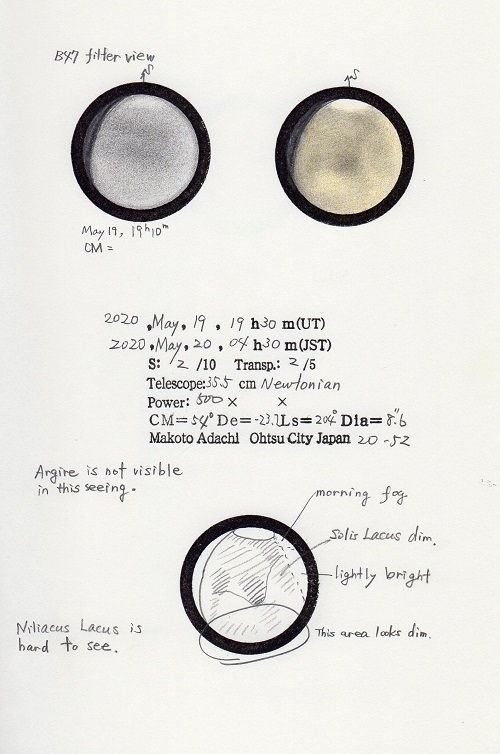 B47 filter view
S
S
May 19, 19h10m
CM =
2020 , May, 19 , 19 h 30 m(UT)
2020 , May, 20 , 04 h 30 m(JST)
S: 2 /10 Transp.: 2 /5
Telescope: 35.5 cm Newtonian
Power: 500 × ×
CM= 54° De= -23.7 Ls= 204° Dia= 8."6
Makoto Adachi Ohtsu City Japan 20 -52
Argire is not visible
in this seeing.
morning fog
Solis Lacus dim.
lightly bright
Niliacus Lacus is
hard to see.
This area looks dim.